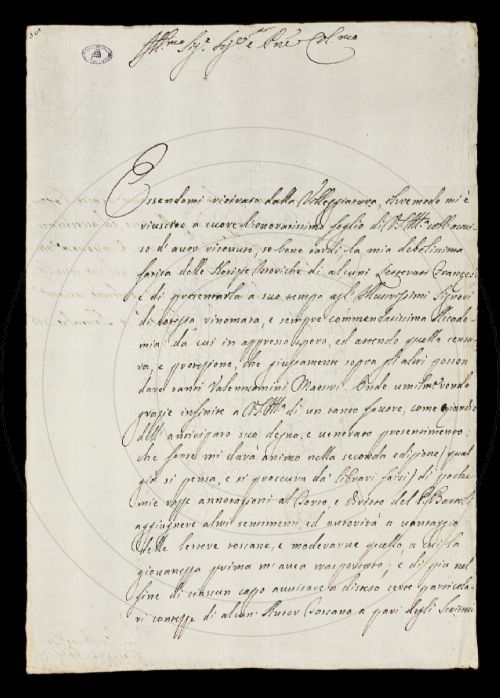 Ill.mo Sig.e Sig.re e P.ne Col.mo
Essendomi ritirato dalla Villeggiatura, oltremodo mi è
riuscito a cuore l'onoratissimo foglio di V.S. Ill.ma coll'avvi-
so d'aver ricevuto, se bene tardi, la mia debolissima
fatica delle Notizie Istoriche di alcuni Letterati
e di presentarla a suo tempo agl'Illustrissimi Signori
di cotesta rinomata, e sempre commendatissima Accade-
mia: da cui in appresso spero, ed attendo quella censu-
ra, e protezione, che giustamente sopra gli altri posson
dare tanti Valentuomini Maestri. Onde umilm.te rendo
grazie infinite a V.S. Ill.ma di un tanto favore, come
dell'anticipato suo degno, e venerato presentimento:
che forse mi darà animo nella seconda edizione (qual
già si pensa, e si proccura da' librari farsi) di poche
mie rozze annotazioni al Torto, e diritto del P. Bartoli
aggiugnere altri sentimenti, ed autorità a vantaggio
delle lettere toscane, e moderarne quello, a cui la
giovanezza prima m'avea trasportato; e di più nel
fine di ciascun capo avvisare a disteso certe particola-
ri contezze di alcun Autor Toscano a pari degli